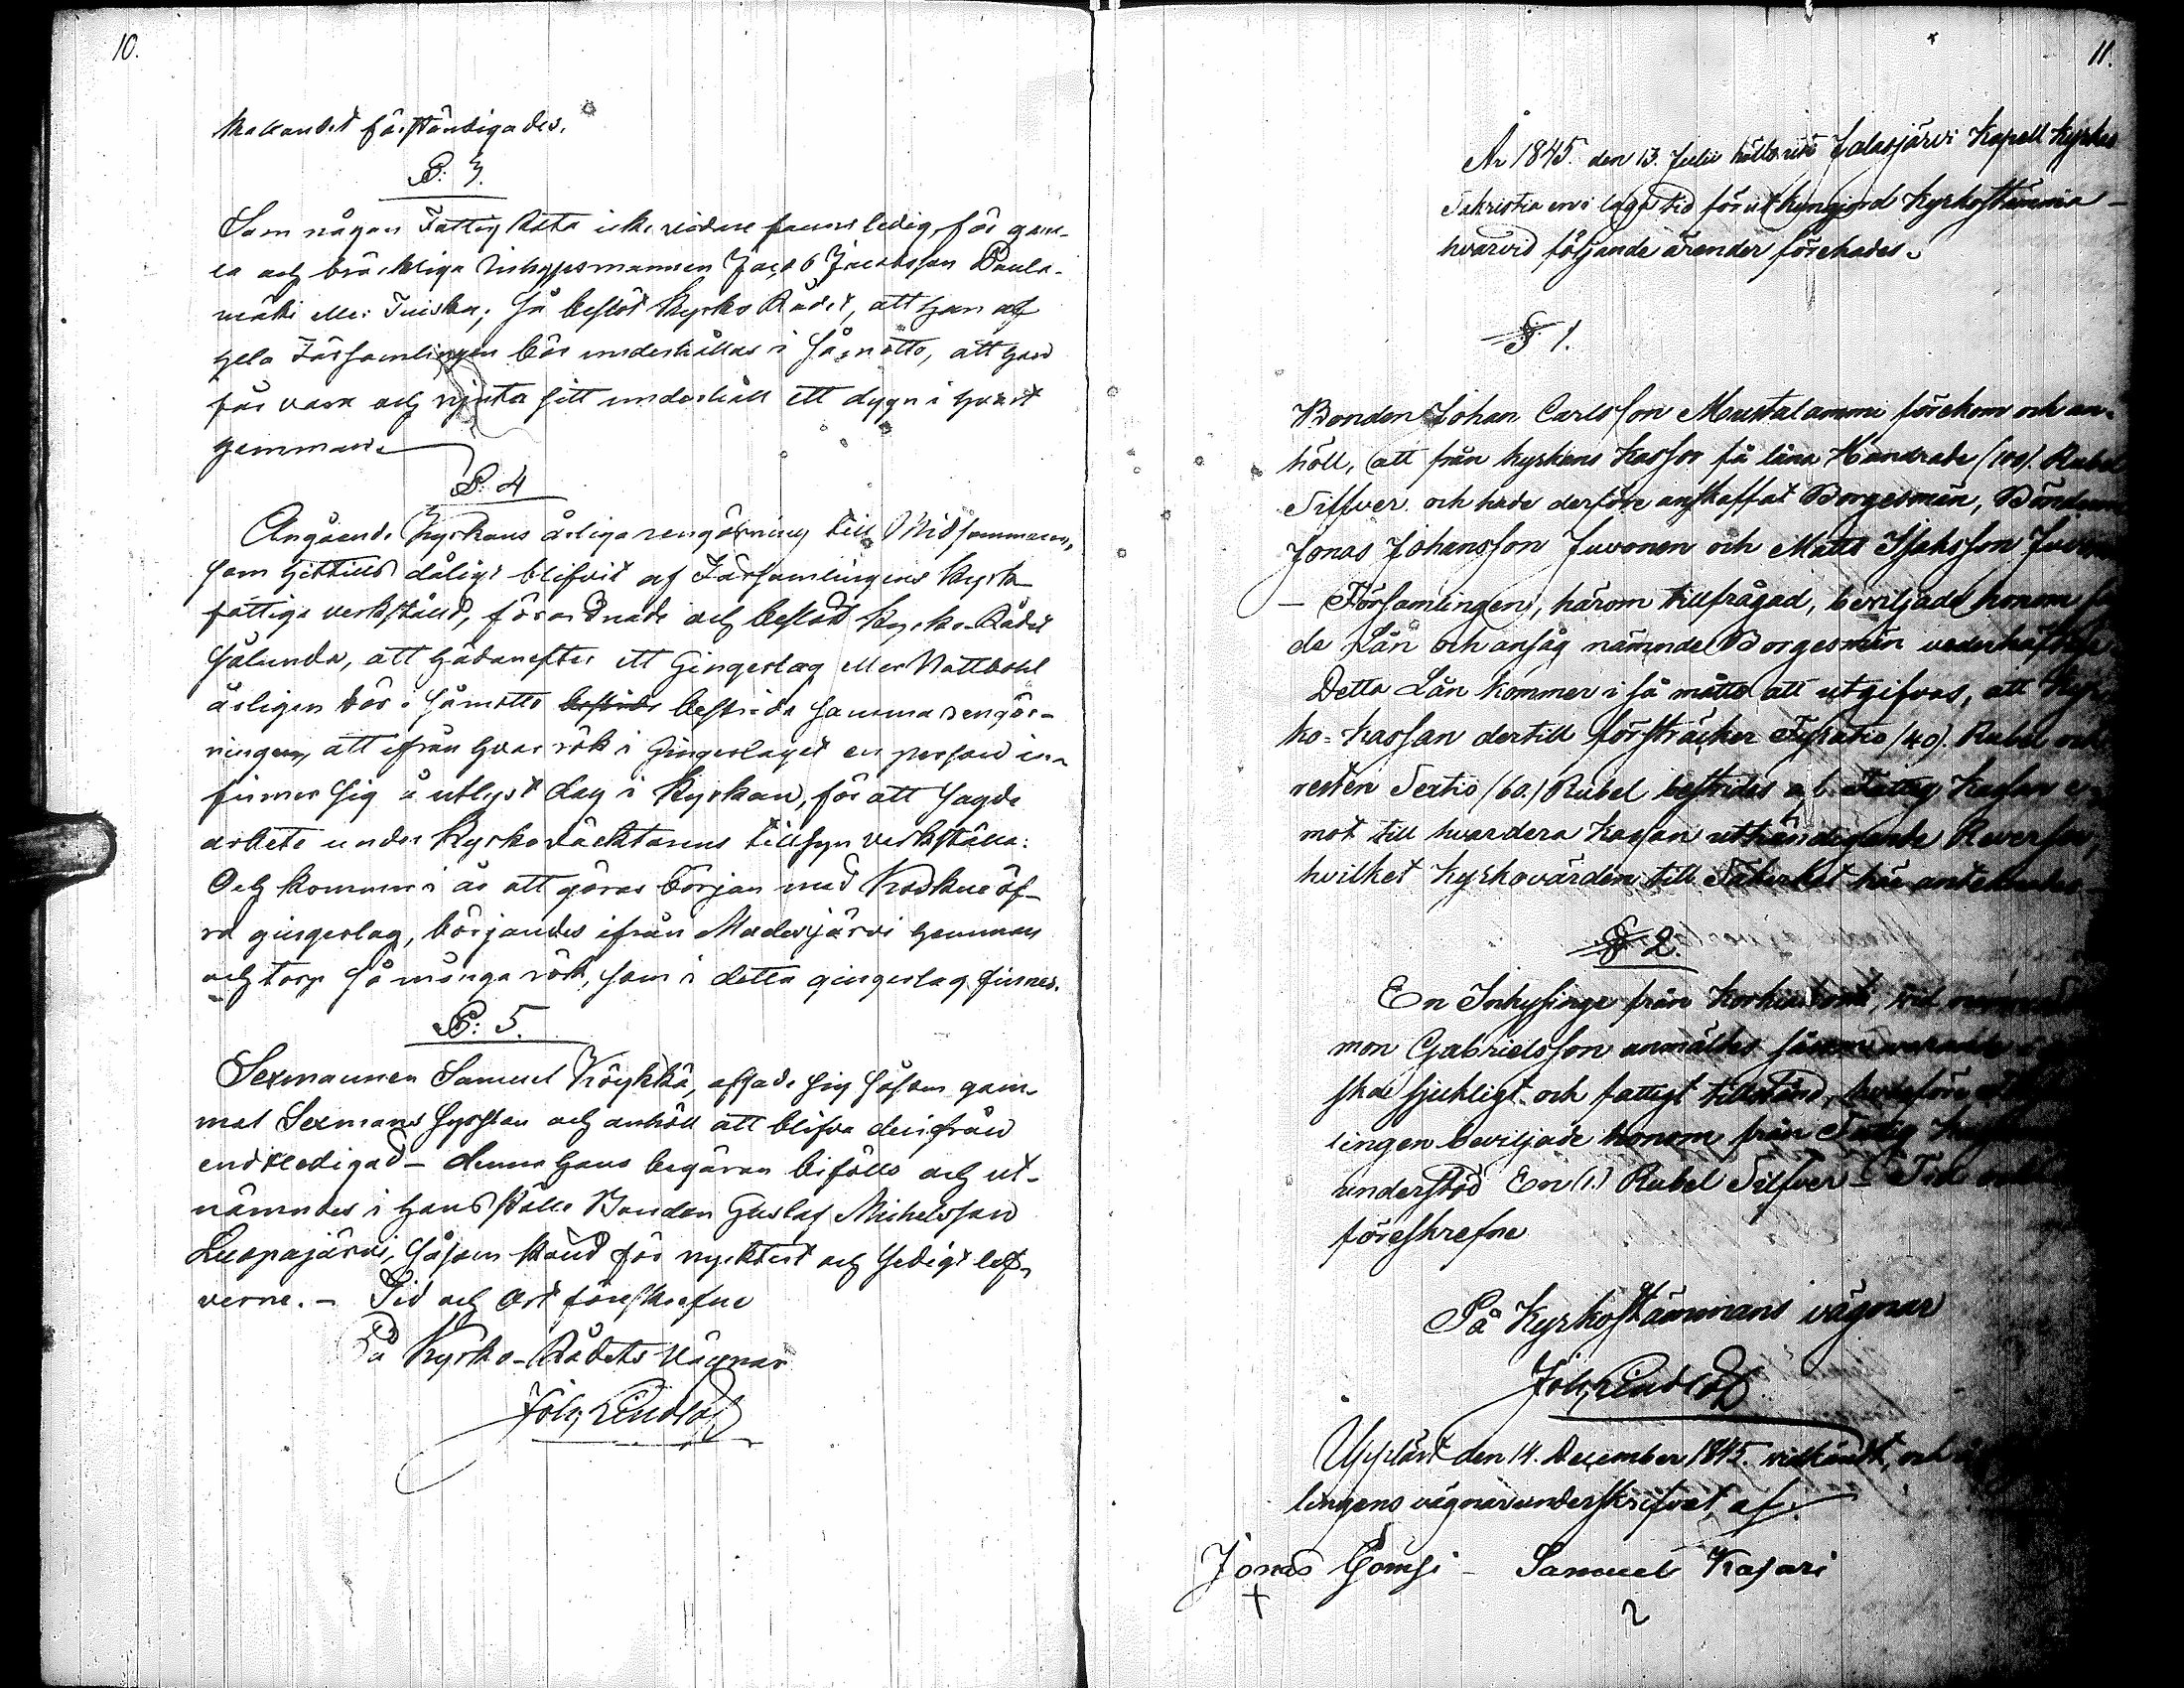 10.
makandet förständigades.
§: 3.
Som någon Fattig Rota icke vidare fanns ledig för gam-
la och bräckliga Inhyssmannen Jacob Jacobsson Paula-
mäki eller Tuiska; så beslöt Kyrko Rådet, att han af
hela Församlingen bör underhållas i så motto, att han
får vara och njuta sitt underhåll ett dygn i hvart
hemman.
§. 4
Angående Kyrkans årliga rengöring till Midsommaren,
som hittills dåligt blifvit af Församlingens Kyrko
fattiga verkställd, förordnade och beslöt Kyrko-Rådet
sålunda, att hädanefter ett Gingerlag eller Nattvard
årligen bör i såmotto bestrida bestrida samma rengör-
ningen, att ifrån hvar rök i Gingerlaget en person in-
finner sig å utlyst dag i Kyrkan, för att sagde
arbete under Kyrkoväcktarens tillsyn verkställa:
Och kommer i år att göras början med Koskue öf-
ra gingerlag, börjandes ifrån Madesjärvi hemman
och torp så många rök, som i detta gingerlag finnes.
§: 5.
Sexmannen Samuel Köykkä, afsade sig såsom gam-
mal Sexmans sysslan och anhöll att blifva derifrån
entledigad – denna hans begäran bifölls och ut-
nämndes i hans ställe Bonden Gustaf Michelsson
Luopajärvi, såsom känd för nycktert och sedigt lef-
verne. – Tid och Ort föreskrefne
På Kyrko-Rådets vägnar
Joh: Lindlöf
11.
År 1845. den 13. Julii hölls uti Jalasjärvi Kapell Kyrkas
Sakristia en i laga tid förut kungjord Kyrkostämma –
hvarvid följande ärender förehades.
§ 1.
Bonden Johan Carlsson Mustalammi förekom och an-
höll, att från kyrkans kassor få låna Hundrade (100). Rubel
Silfver och hade derföre anskaffat Borgesmän, Bönderne
Jonas Johansson Juvonen och Matts Isaksson
– Församlingen, härom tillfrågad, beviljade honom
de Lån och ansåg nämnde Borgesmän vederhäftige
Detta Lån kommer i så måtto att utgifvas, att Kyr-
ko-kassan dertill försträcker Fyratio (40). Rubel och
resten Sextio (60.) Rubel bestrides af Fattig Kassan
mot till hvardera kassan uthändigande Reverser,
hvilket kyrkovärden till säkerhet här antecknades
§ 2.
En Inhysinge från
mon Gabrielsson anmäldes såsom varande
skal sjukligt och fattigt tillstånd, hvarföre
lingen beviljade honom från Fattig Kassan
understöd En (1.) Rubel Silfver – Tid och
föreskrefne
På Kyrkostämmans vägnar
Joh: Lindlöf
Uppläst den 14. December 1845. vidkändt, och
lingens vägnar underskrifvet, af.
Jonas – Samuel Kasari
+ 2